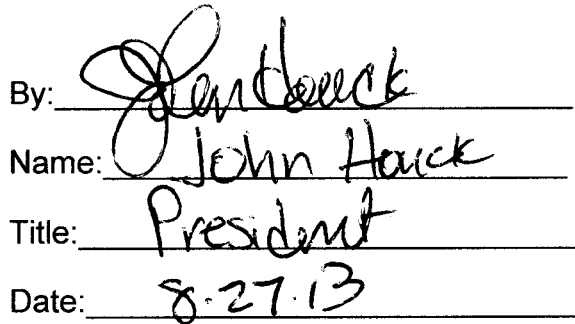 By: John Houck
Name: John Houck
Title: President
Date: 8.27.13